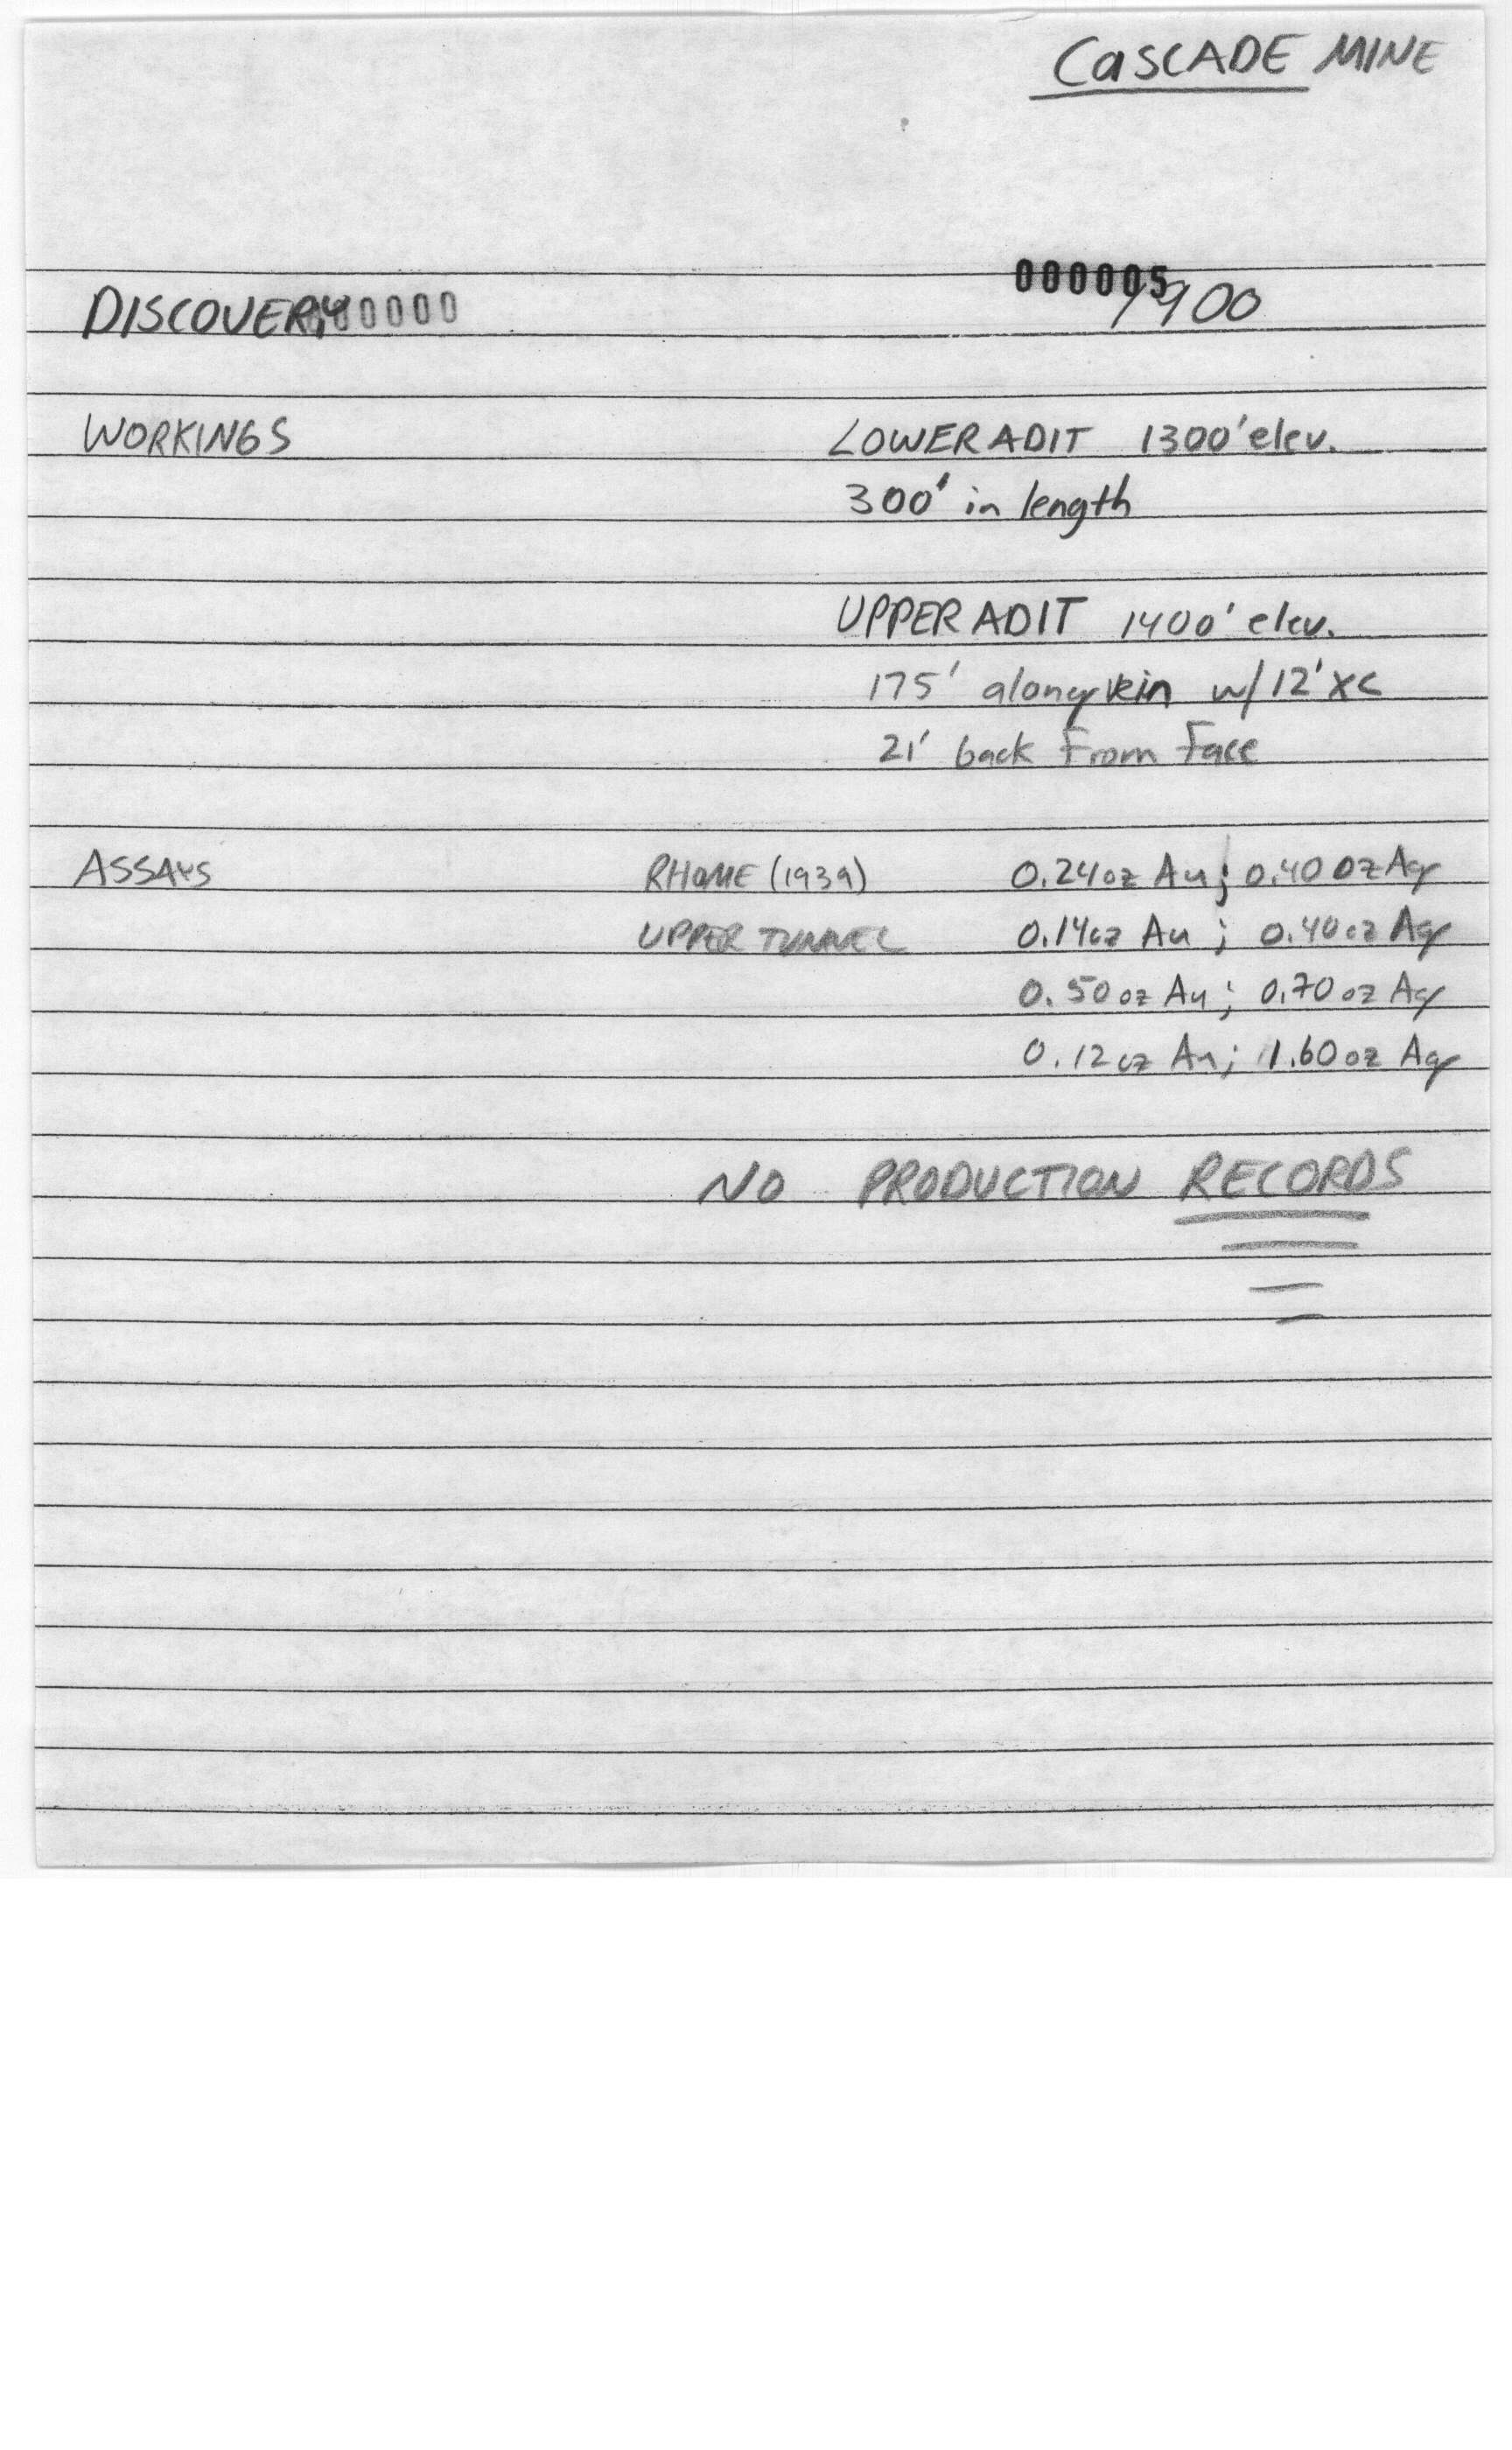 CASCADE MINE
000005
DISCOVERY 000000 1900
WORKINGS LOWER ADIT 1300' elev.
300' in length
UPPER ADIT 1400' elev.
175' along vein w/ 12' XC
21' back From Face
ASSAYS RHOME (1939) 0.24oz Au; 0.40 oz Ag
UPPER TUNNEL 0.14oz Au; 0.40oz Ag
0.50 oz Au; 0.70 oz Ag
0.12 oz Au; 1.60 oz Ag
NO PRODUCTION RECORDS